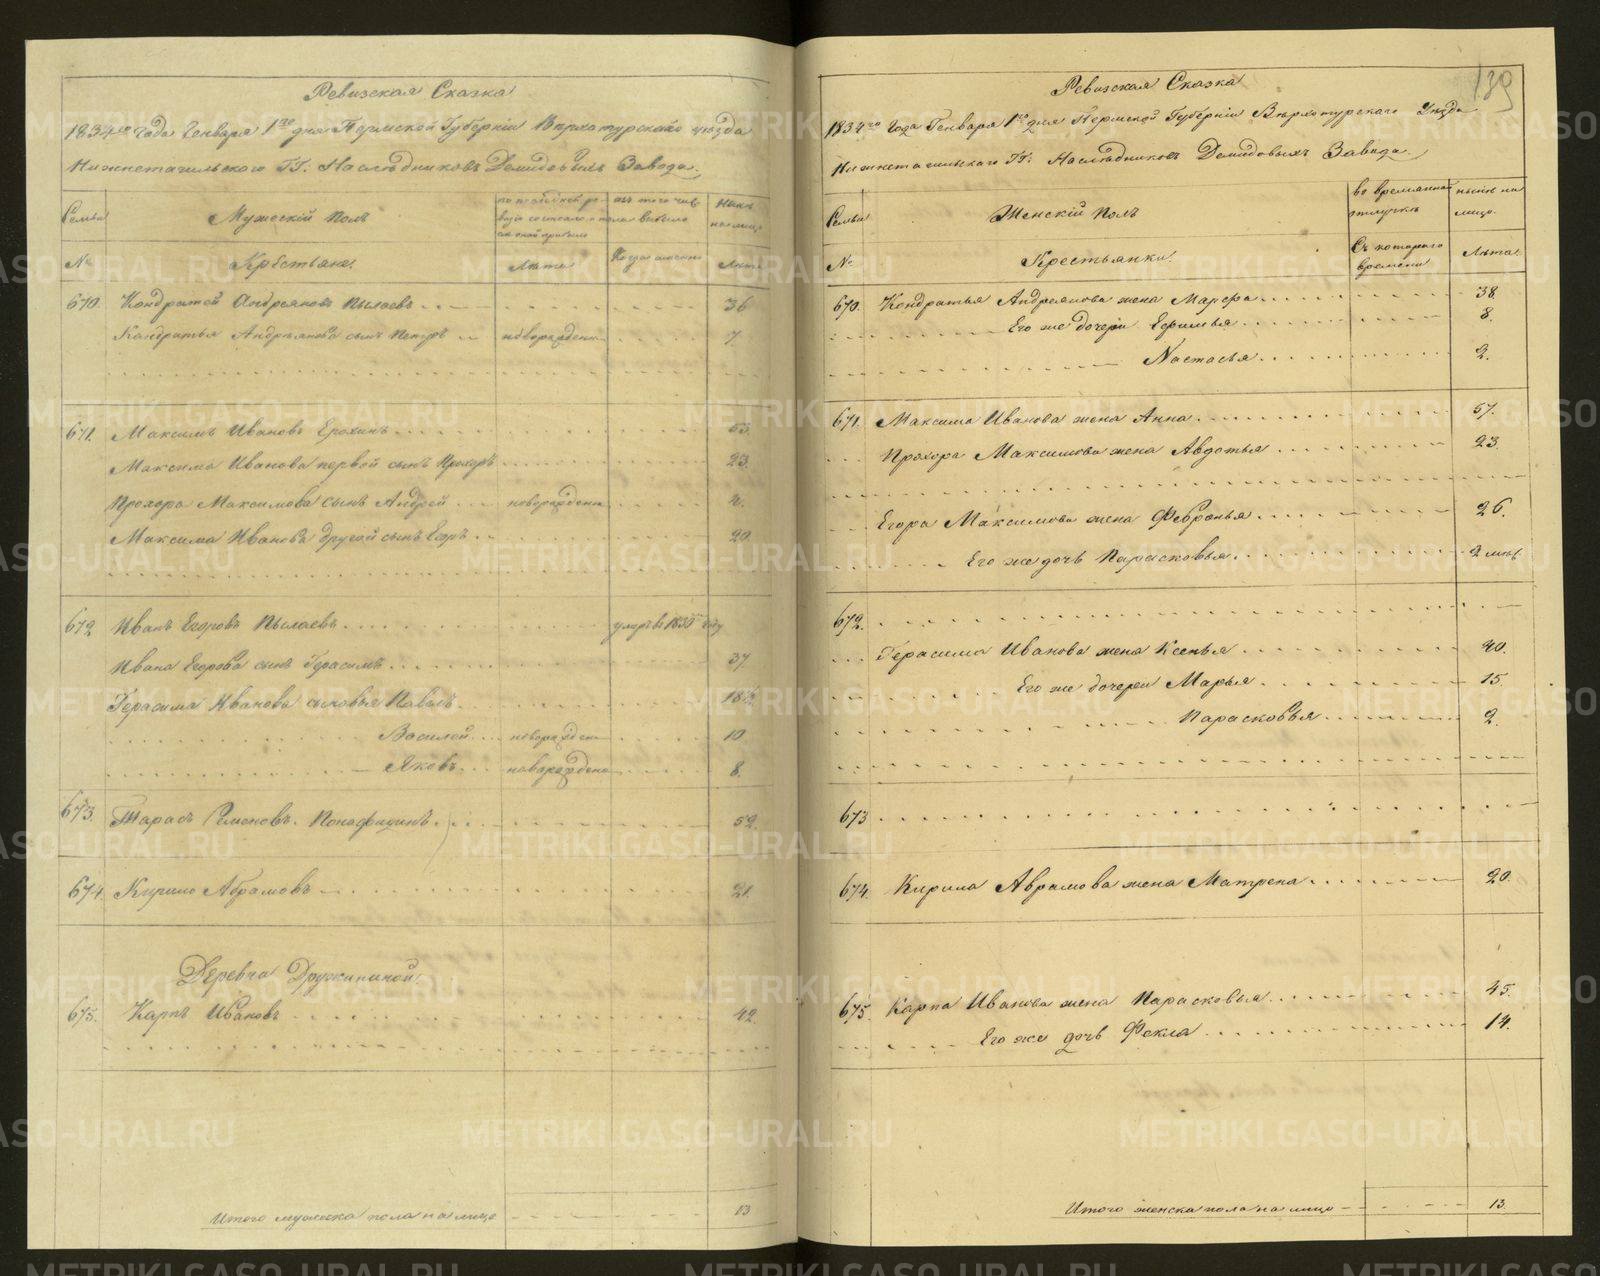 Ревизская Сказка
1834го года Генваря 1го дня Пермской Губернiи Верхотурскаго уѣзда
Нижнетагильскаго ГГ. Наслѣдниковъ Демидовыхъ Завода.
Семьи
Мужескiй Полъ
по последней ре-
визiи состояло и по
изъ того числа
выбыло
Нынѣ
на лицо
№
Крестьяне.
Лѣта
Когда именно
Лѣта
670. Кондратей Андреяновъ Пылаевъ 36
Кондратья Андреянова сынъ Петръ новорожденъ 7
671. Максимъ Ивановъ Ерохинъ 53.
Максима Иванова первой сынъ Прохоръ 23.
Прохора Максимова сынъ Андрей новорожденъ 4.
Максима Иванова другой сынъ Егоръ 20
672 Иванъ Егоровъ Пылаевъ умеръ въ году
Ивана Егорова сынъ Герасимъ 37
Герасима Иванова сыновья Павелъ
Василей новорожденъ 10
Яковъ новорожденъ 8.
673. Тарасъ Семеновъ 52.
674. Кирило Абрамовъ 21.
Деревня Дружининой.
675. Карпъ Ивановъ 42.
Итого мужеска пола на лицо 13
139
Ревизская Сказка
1834го Года Генваря 1го дня Пермской Губернiи Верхотурскаго Уѣзда
Нижнетагильскаго ГГ. Наслѣдниковъ Демидовыхъ Завода.
Семьи
Женскiй Полъ
во временной
отлучкѣ
нынѣ на
лицо.
№
Крестьянки.
Съ котораго
времени
Лѣта.
670. Кондратья Андреянова жена Марфа 38.
Его же дочери Ефимья 8.
Настасья 2.
671. Максима Иванова жена Анна 57.
Прохора Максимова жена Авдотья 23.
Егора Максимова жена Февронья 26.
Его же дочь Парасковья 2 мѣс.
672.
Герасима Иванова жена Ксенья 40.
Его же дочери Марья 15.
Парасковья 2.
673
674. Кирила Аврамова жена Матрена 20.
675. Карпа Иванова жена Парасковья 45.
Его же дочь Фекла 14.
Итого женска пола на лицо 13.
METRIKI.GASO-URAL.RU